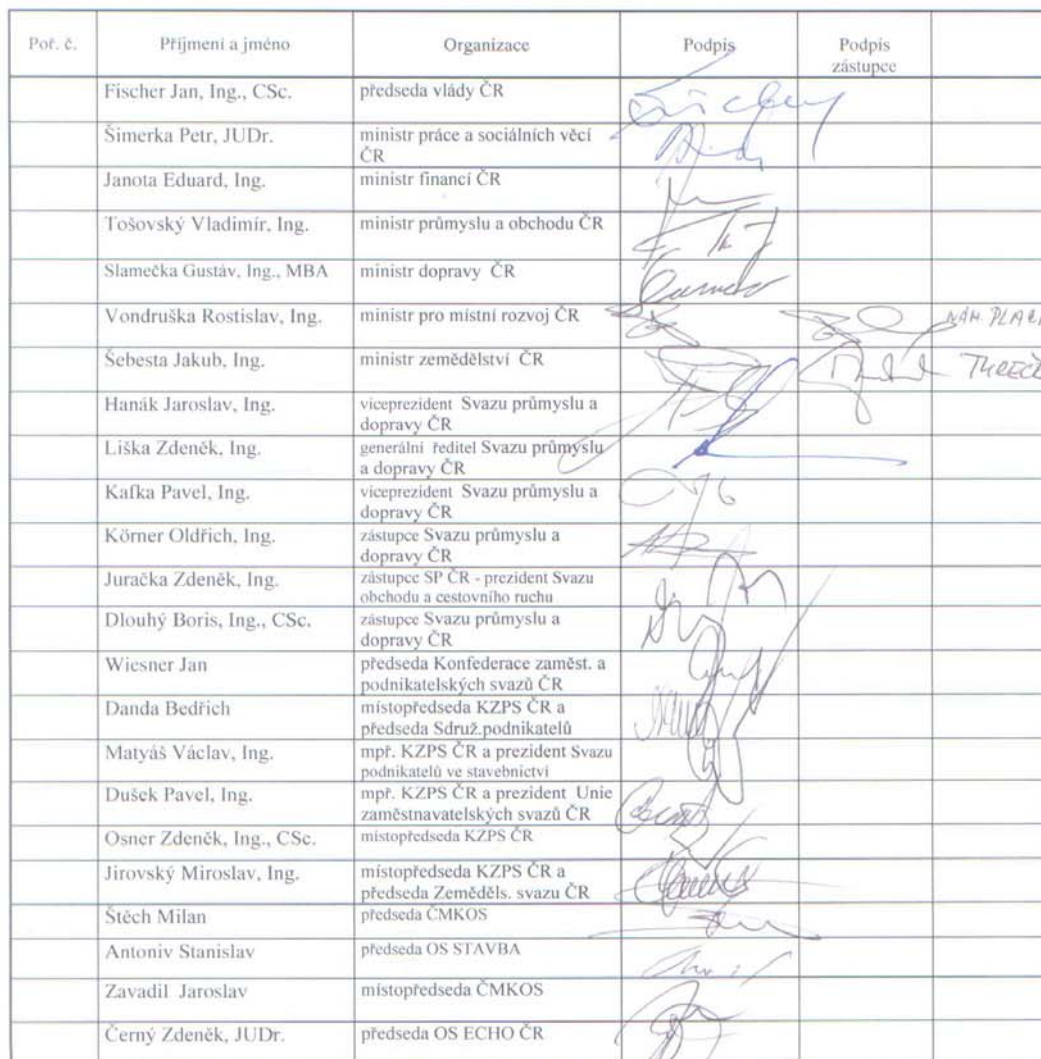 Poř. č. Příjmení a jméno Organizace Podpis Podpis
zástupce
Fischer Jan, Ing., CSc. předseda vlády ČR
Šimerka Petr, JUDr. ministr práce a sociálních věcí
ČR
Janota Eduard, Ing. ministr financí ČR
Tošovský Vladimír, Ing. ministr průmyslu a obchodu ČR
Slamečka Gustáv, Ing., MBA ministr dopravy ČR
Vondruška Rostislav, Ing. ministr pro místní rozvoj ČR NÁM.
Šebesta Jakub, Ing. ministr zemědělství ČR
Hanák Jaroslav, Ing. viceprezident Svazu průmyslu a
dopravy ČR
Liška Zdeněk, Ing. generální ředitel Svazu průmyslu
a dopravy ČR
Kafka Pavel, Ing. viceprezident Svazu průmyslu a
dopravy ČR
Körner Oldřich, Ing. zástupce Svazu průmyslu a
dopravy ČR
Juračka Zdeněk, Ing. zástupce SP ČR - prezident Svazu
obchodu a cestovního ruchu
Dlouhý Boris, Ing., CSc. zástupce Svazu průmyslu a
dopravy ČR
Wiesner Jan předseda Konfederace zaměst. a
podnikatelských svazů ČR
Danda Bedřich místopředseda KZPS ČR a
předseda Sdruž.podnikatelů
Matyáš Václav, Ing. mpř. KZPS ČR a prezident Svazu
podnikatelů ve stavebnictví
Dušek Pavel, Ing. mpř. KZPS ČR a prezident Unie
zaměstnavatelských svazů ČR
Osner Zdeněk, Ing., CSc. místopředseda KZPS ČR
Jirovský Miroslav, Ing. místopředseda KZPS ČR a
předseda Zeměděls. svazu ČR
Štěch Milan předseda ČMKOS
Antoniv Stanislav předseda OS STAVBA
Zavadil Jaroslav místopředseda ČMKOS
Černý Zdeněk, JUDr. předseda OS ECHO ČR